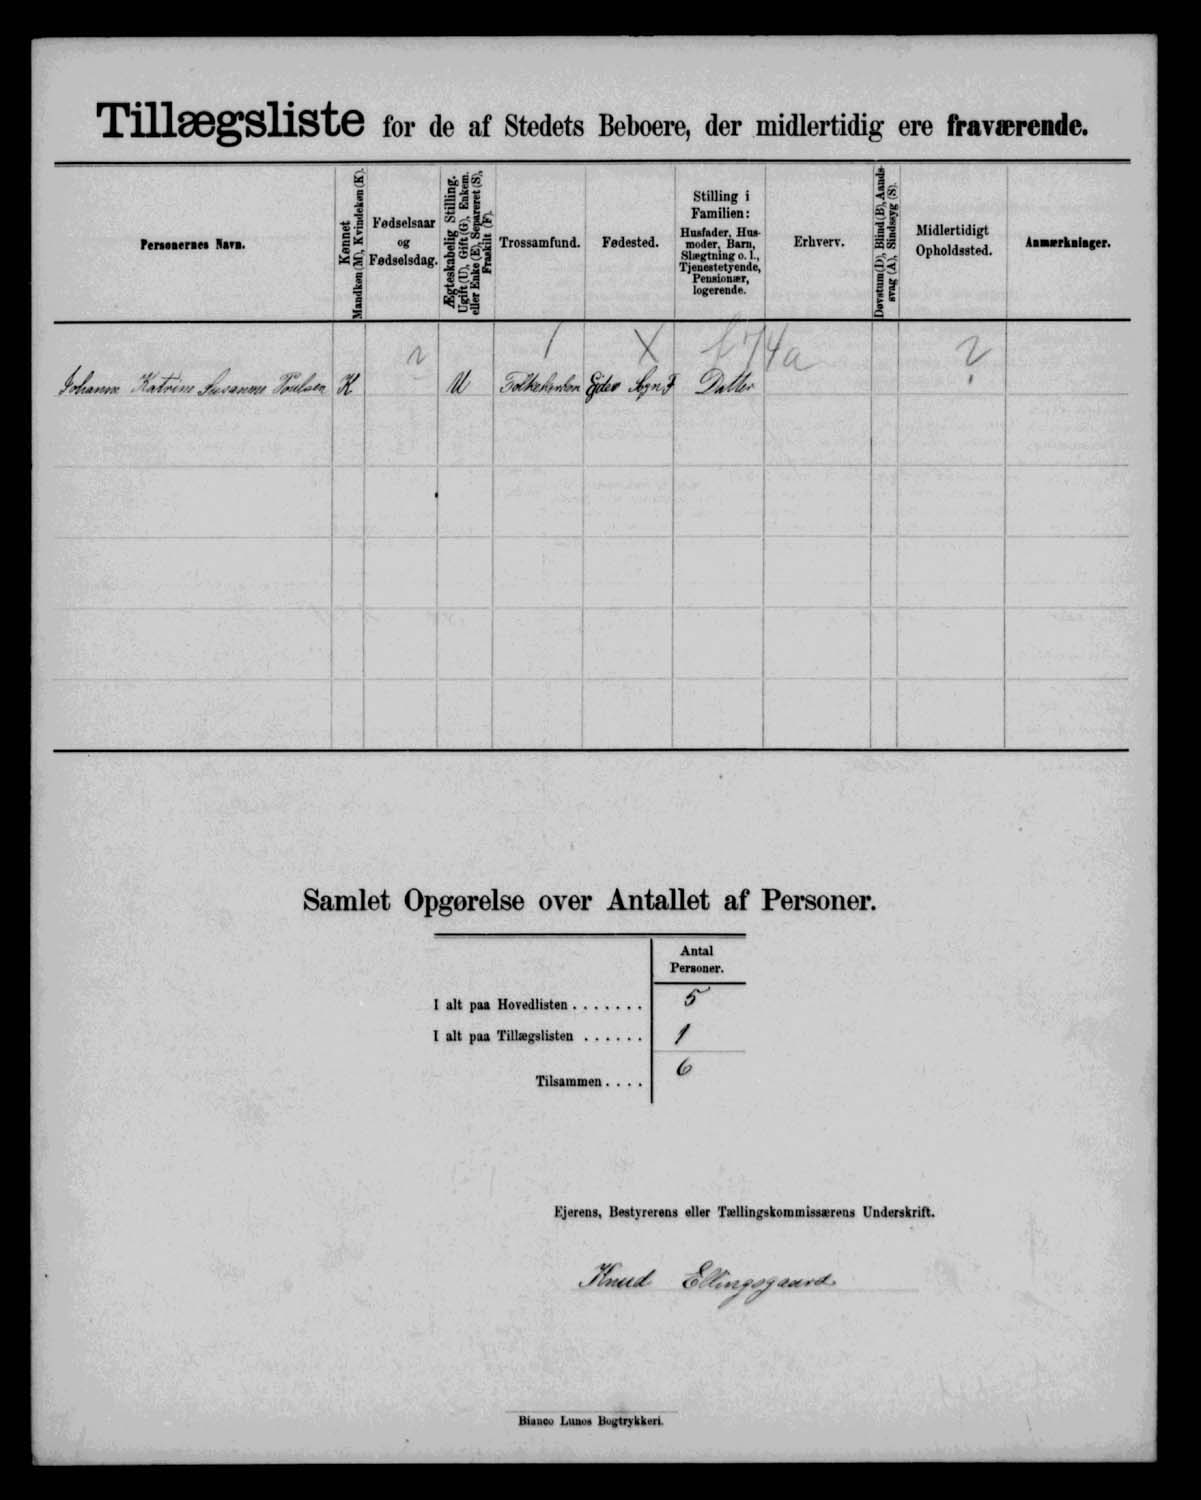 Tillægsliste for de af Stedets Beboere, der midlertidig ere fraværende.
Personernes Navn.
Kønnet
Mandkøn (M), Kvindekøn (K).
Fødselsaar
og
Fødselsdag.
Ægteskabelig Stilling.
Ugift (U), Gift (G), Enkem.
eller Enke (E), Separeret (S),
Fraskilt (F).
Trossamfund.
Fødested.
Stilling i
Familien:
Husfader, Hus-
moder, Barn,
Slægtning o. l.,
Tjenestetyende,
Pensionær,
logerende.
Erhverv.
Døvstum (D), Blind (B), Aands-
svag (A), Sindssyg (S).
Midlertidigt
Opholdssted.
Anmærkninger.
? 74a ?
Katrine Susanne K U Folkekirken Sogn F Datter
Samlet Opgørelse over Antallet af Personer.
Antal
Personer.
I alt paa Hovedlisten . . . . . . . 5
I alt paa Tillægslisten . . . . . . 1
Tilsammen . . . . 6
Ejerens, Bestyrerens eller Tællingskommissærens Underskrift.
Knud Ellingsgaard
Bianco Lunos Bogtrykkeri.